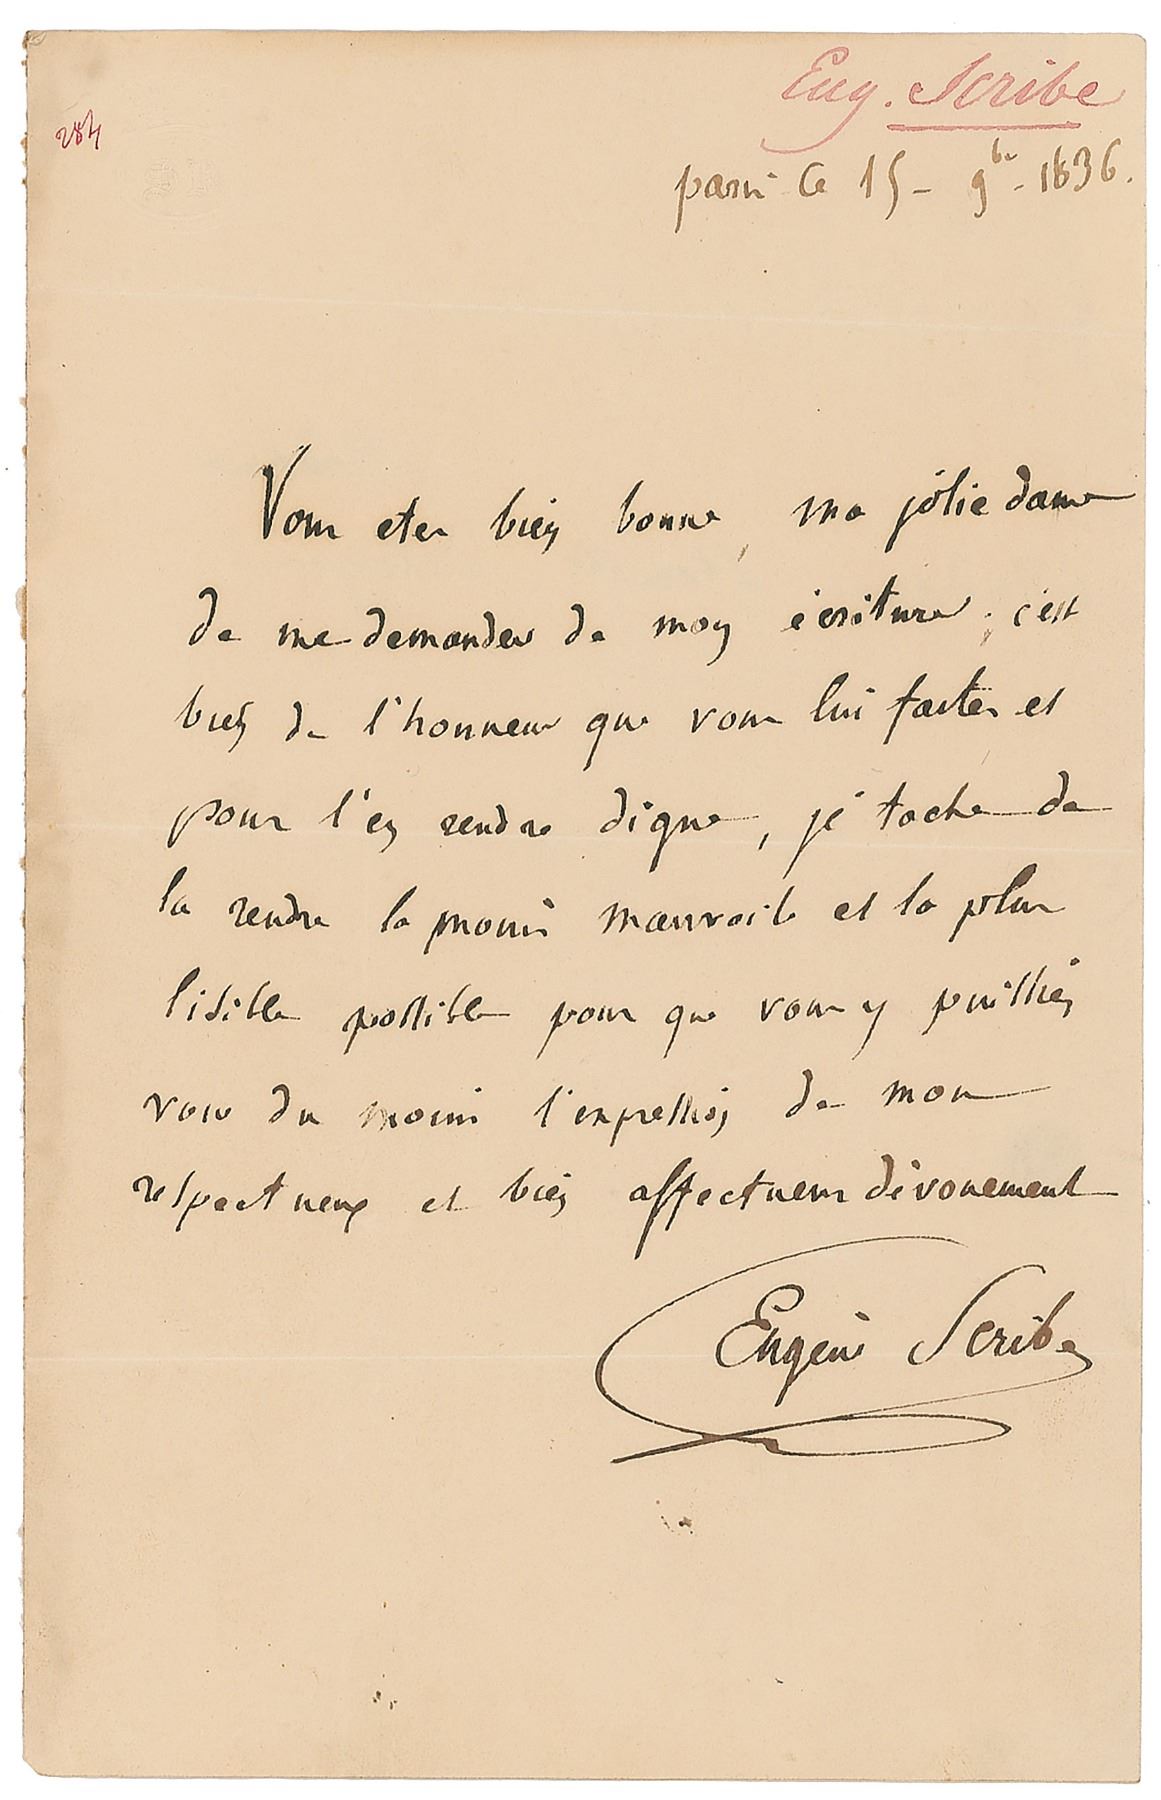 Eug. Scribe
284
paris ce 15 - 9bre - 1836.
Vous etes bien bonne, ma jolie dame
de me demander de mon écriture ; c'est
bien de l'honneur que vous lui faites et
pour l'en rendre digne, je tache de
la rendre la moins mauvaise et la plus
lisible possible pour que vous y puissiez
voir du moins l'expression de mon
respectueux et bien affectueux dévouement
Eugène Scribe